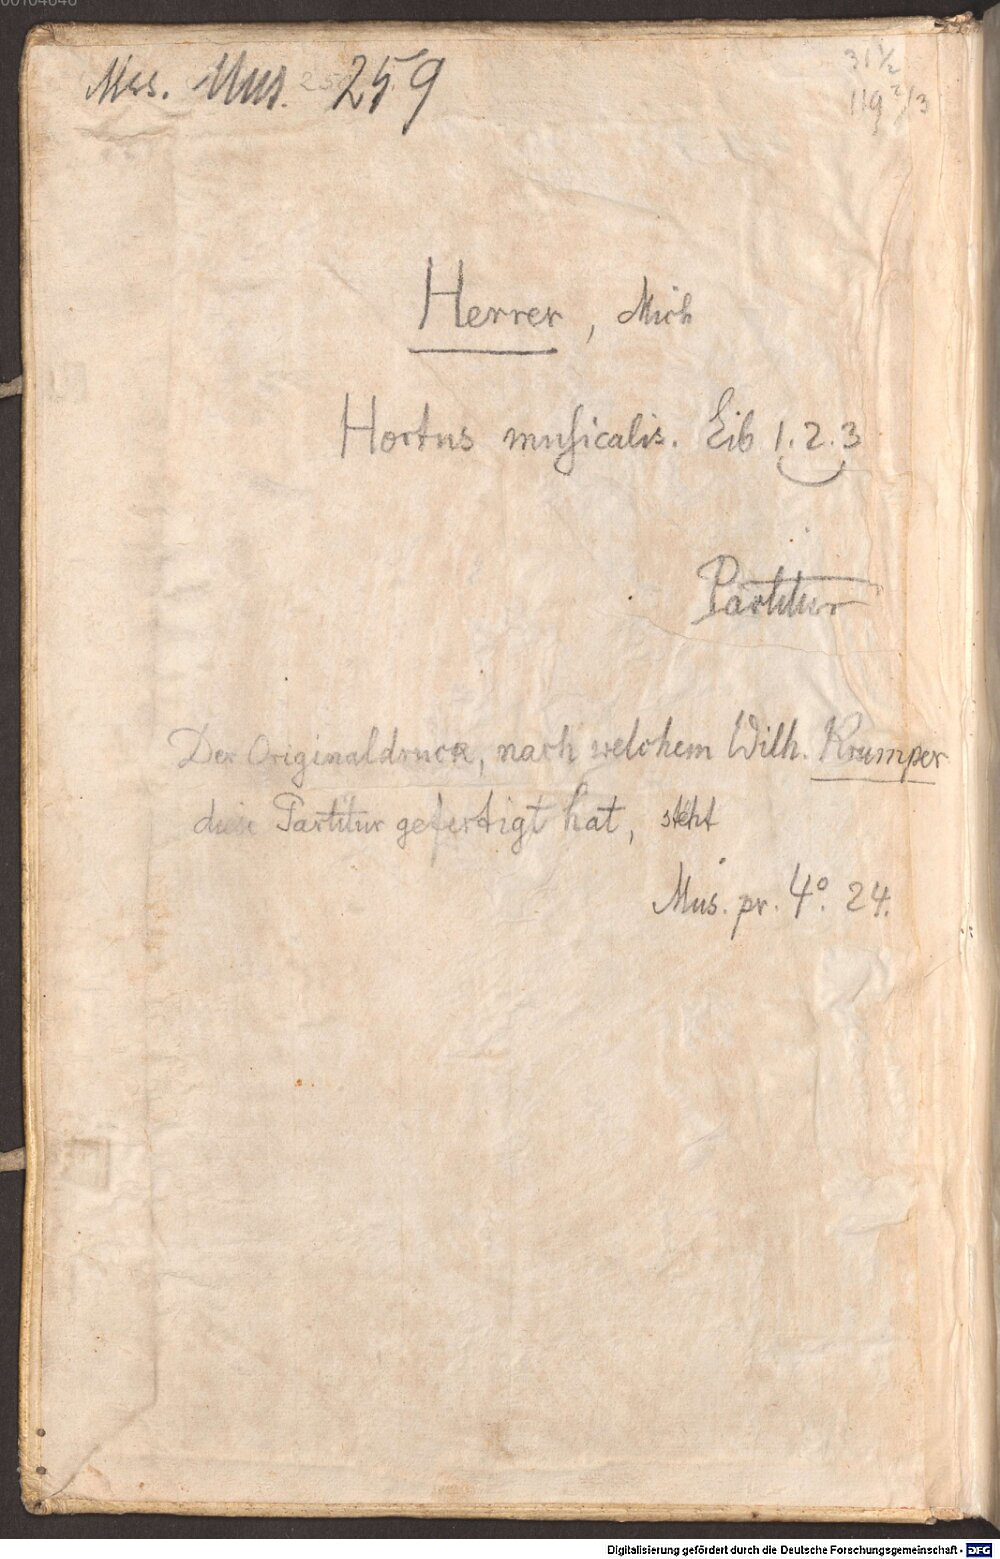 Mus. Mus. 259
259
31 1/2
119 2/3
Herrer, Mich
Hortus musicalis. Lib 1. 2. 3
Partitur
Der Originaldruck, nach welchem Wilh. Krumper
diese Partitur gefertigt hat, steht
Mus. pr. 4° 24.
Digitalisierung gefördert durch die Deutsche Forschungsgemeinschaft - DFG